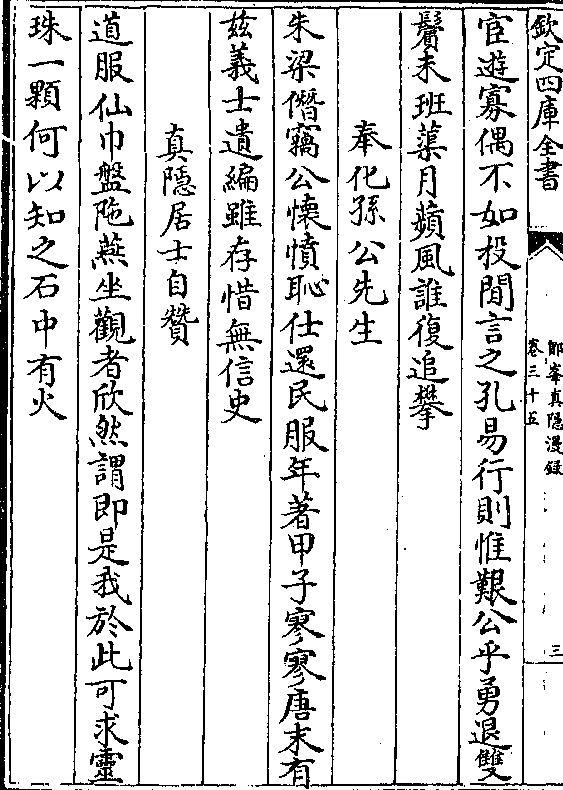 欽定四庫全書
鄮峯真隠漫録
卷三十五
三
宦遊寡偶不如投閒言之孔易行則惟艱公乎勇退雙
鬢未班蕖月蘋風誰復追攀
奉化孫公先生
朱梁僭竊公懐憤恥仕還民服年著甲子寥寥唐末有
兹義士遺編雖存惜無信史
真隠居士自贊
道服仙巾盤陁燕坐觀者欣然謂即是我於此可求靈
珠一顆何以知之石中有火